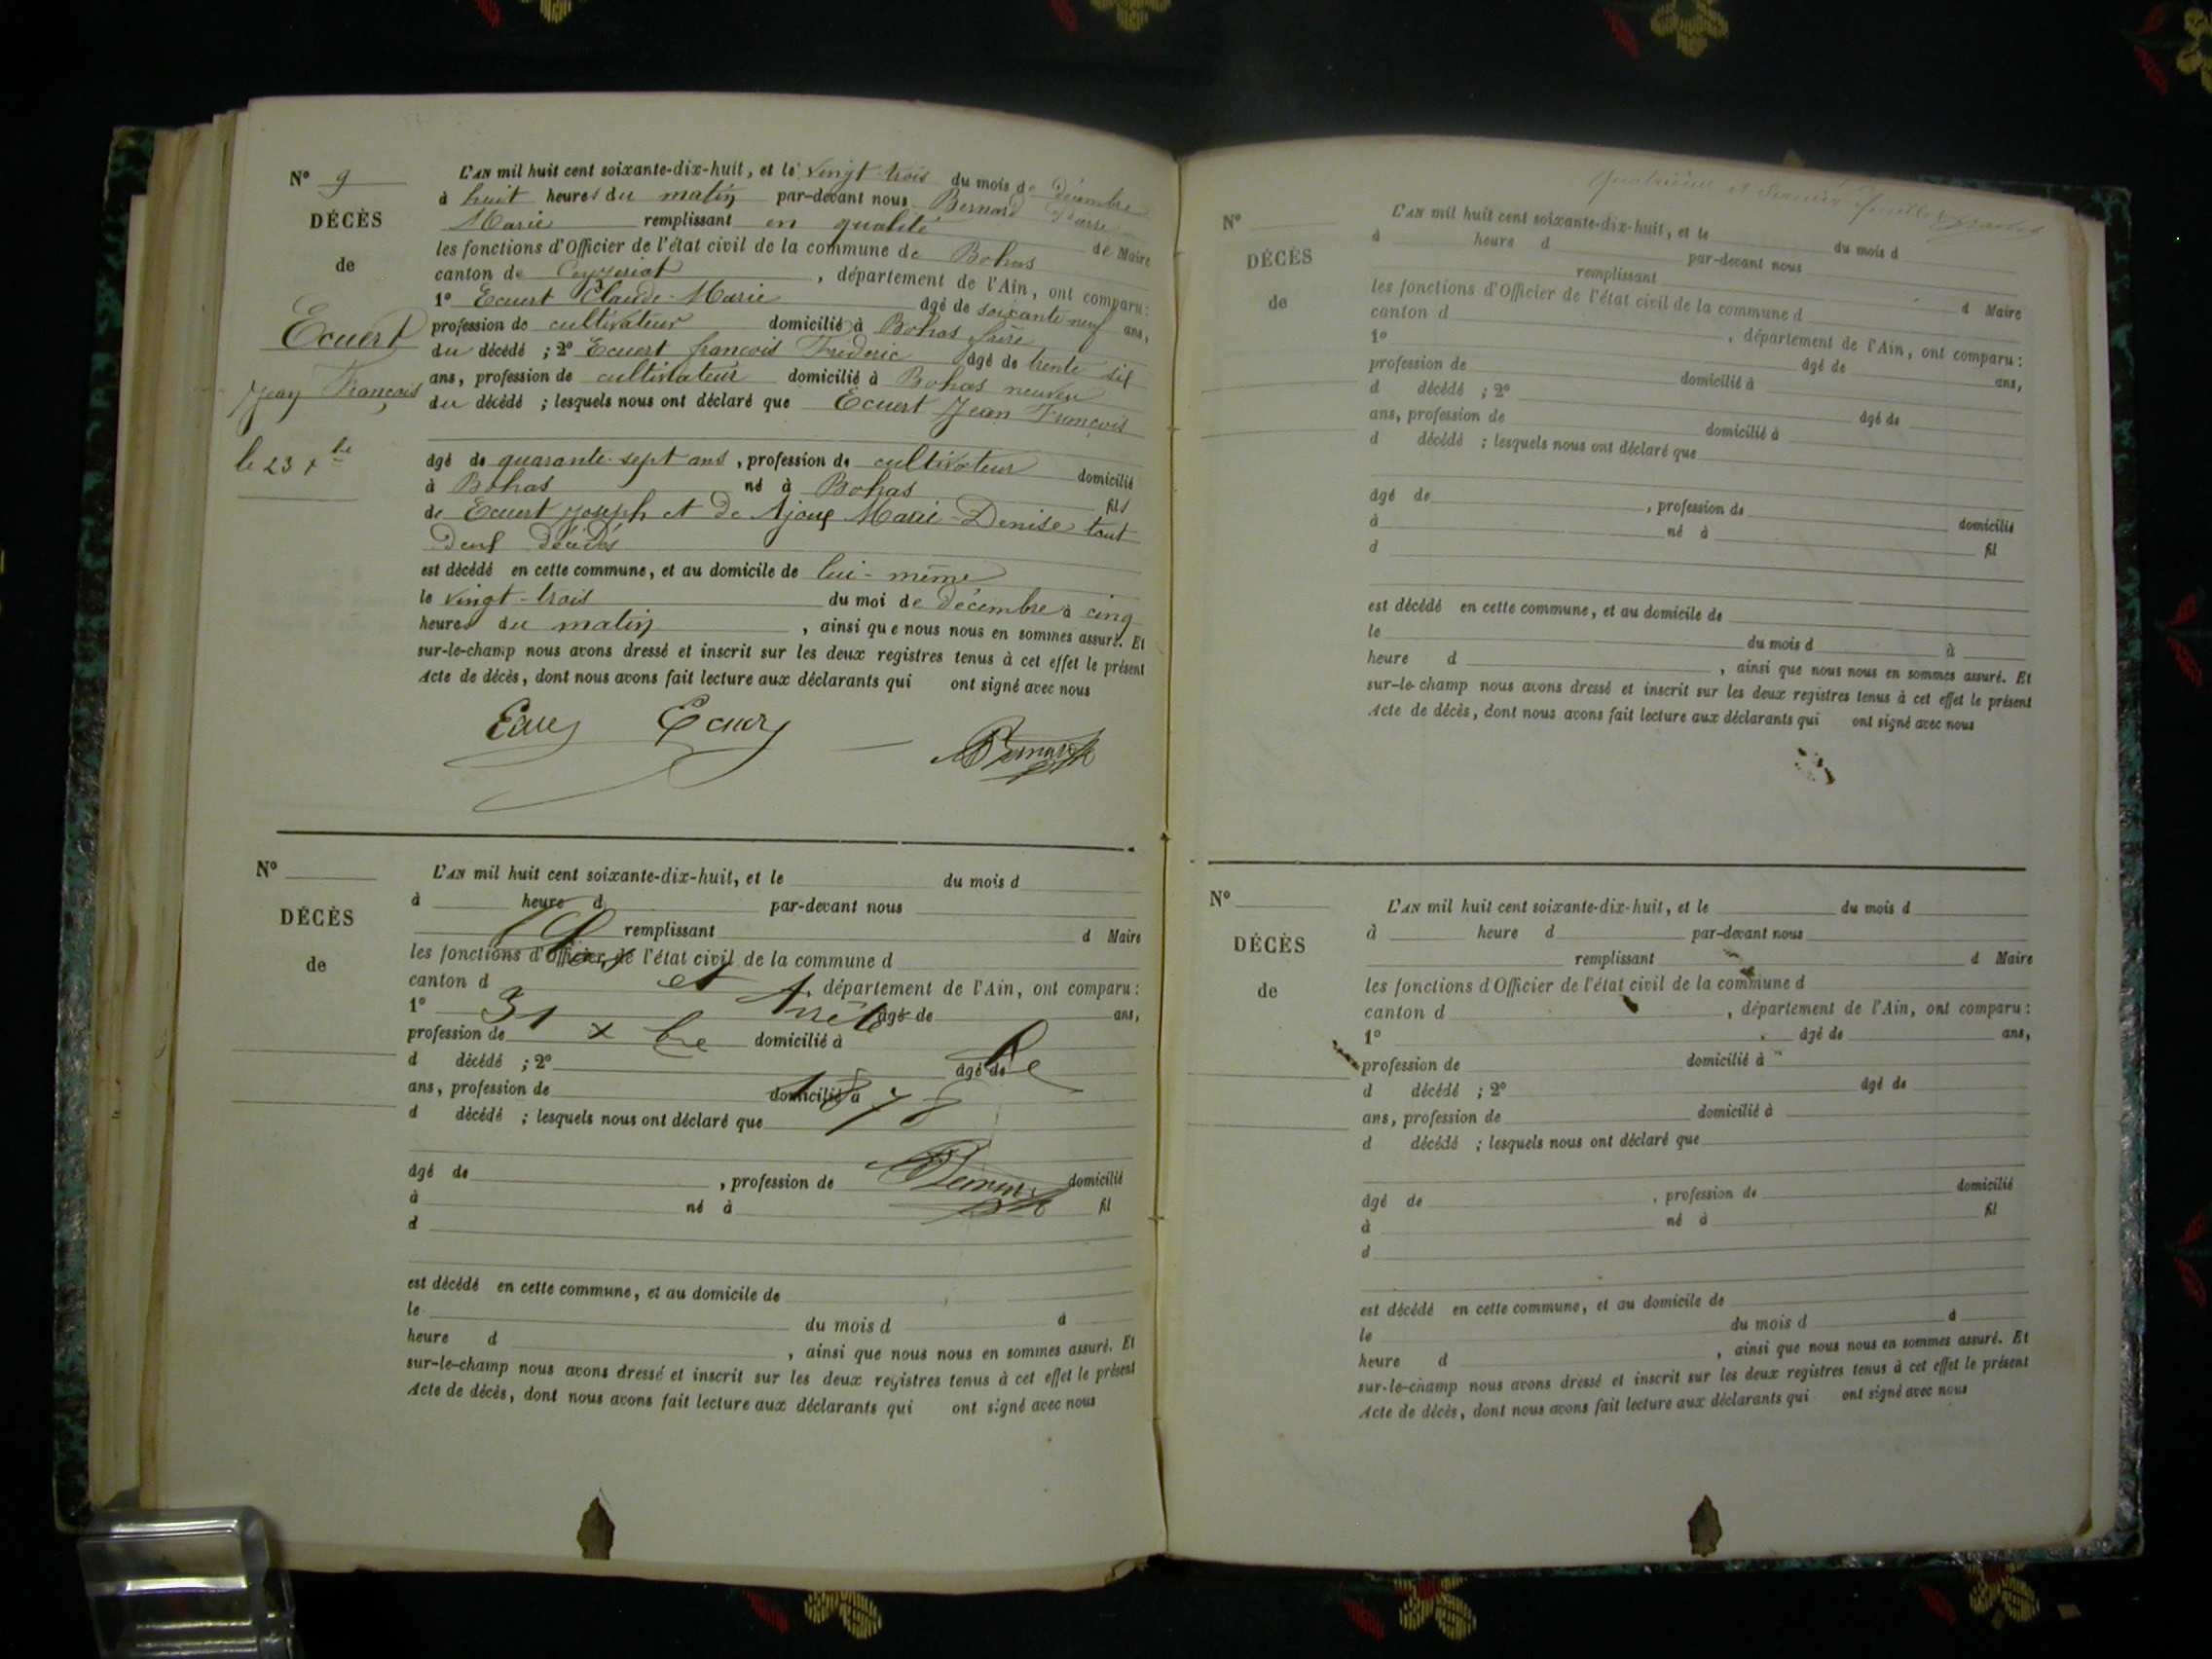 N° 9
DÉCÈS
de
Ecuert
Jean François
le 23 xbre
L'AN mil huit cent soixante-dix-huit, et le vingt trois du mois de Décembre
à huit heures du matin par-devant nous Bernard Pierre
Marie remplissant en qualité de Maire
les fonctions d'Officier de l'état civil de la commune de Bohas
canton de Ceyzeriat, département de l'Ain, ont comparu:
1° Ecuert Claude-Marie âgé de soixante neuf ans,
profession de cultivateur domicilié à Bohas frère
du décédé ; 2° Ecuert françois Frédéric âgé de trente six
ans, profession de cultivateur domicilié à Bohas neuveu
du décédé ; lesquels nous ont déclaré que Ecuert Jean François
âgé de quarante-sept ans, profession de cultivateur domicilié
à Bohas né à Bohas fils
de Ecuert Joseph et de Marie-Denise tout
deux décédés
est décédé en cette commune, et au domicile de lui-même
le vingt-trois du moi de décembre à cinq
heures du matin, ainsi que nous nous en sommes assuré. Et
sur-le-champ nous avons dressé et inscrit sur les deux registres tenus à cet effet le présent
Acte de décès, dont nous avons fait lecture aux déclarants qui ont signé avec nous
Bernard
N°
DÉCÈS
de
L'AN mil huit cent soixante-dix-huit, et le du mois d
à heure d par-devant nous
remplissant d Maire
les fonctions d'Officier de l'état civil de la commune d
canton d , département de l'Ain, ont comparu:
1° âgé de ans,
profession de domicilié à
d décédé ; 2° âgé de
ans, profession de domicilié à
d décédé ; lesquels nous ont déclaré que
Clos et Arrêté le
31 xbre 1878
âgé de , profession de domicilié
à né à fil
d
est décédé en cette commune, et au domicile de
le du mois d à
heure d , ainsi que nous nous en sommes assuré. Et
sur-le-champ nous avons dressé et inscrit sur les deux registres tenus à cet effet le présent
Acte de décès, dont nous avons fait lecture aux déclarants qui ont signé avec nous
N°
DÉCÈS
de
L'AN mil huit cent soixante-dix-huit, et le du mois d
à heure d par-devant nous
remplissant d Maire
les fonctions d'Officier de l'état civil de la commune d
canton d , département de l'Ain, ont comparu:
1° âgé de ans,
profession de domicilié à
d décédé ; 2° âgé de
ans, profession de domicilié à
d décédé ; lesquels nous ont déclaré que
âgé de , profession de domicilié
à né à fil
d
est décédé en cette commune, et au domicile de
le du mois d à
heure d , ainsi que nous nous en sommes assuré. Et
sur-le-champ nous avons dressé et inscrit sur les deux registres tenus à cet effet le présent
Acte de décès, dont nous avons fait lecture aux déclarants qui ont signé avec nous
N°
DÉCÈS
de
L'AN mil huit cent soixante-dix-huit, et le du mois d
à heure d par-devant nous
remplissant d Maire
les fonctions d'Officier de l'état civil de la commune d
canton d , département de l'Ain, ont comparu:
1° âgé de ans,
profession de domicilié à
d décédé ; 2° âgé de
ans, profession de domicilié à
d décédé ; lesquels nous ont déclaré que
âgé de , profession de domicilié
à né à fil
d
est décédé en cette commune, et au domicile de
le du mois d à
heure d , ainsi que nous nous en sommes assuré. Et
sur-le-champ nous avons dressé et inscrit sur les deux registres tenus à cet effet le présent
Acte de décès, dont nous avons fait lecture aux déclarants qui ont signé avec nous